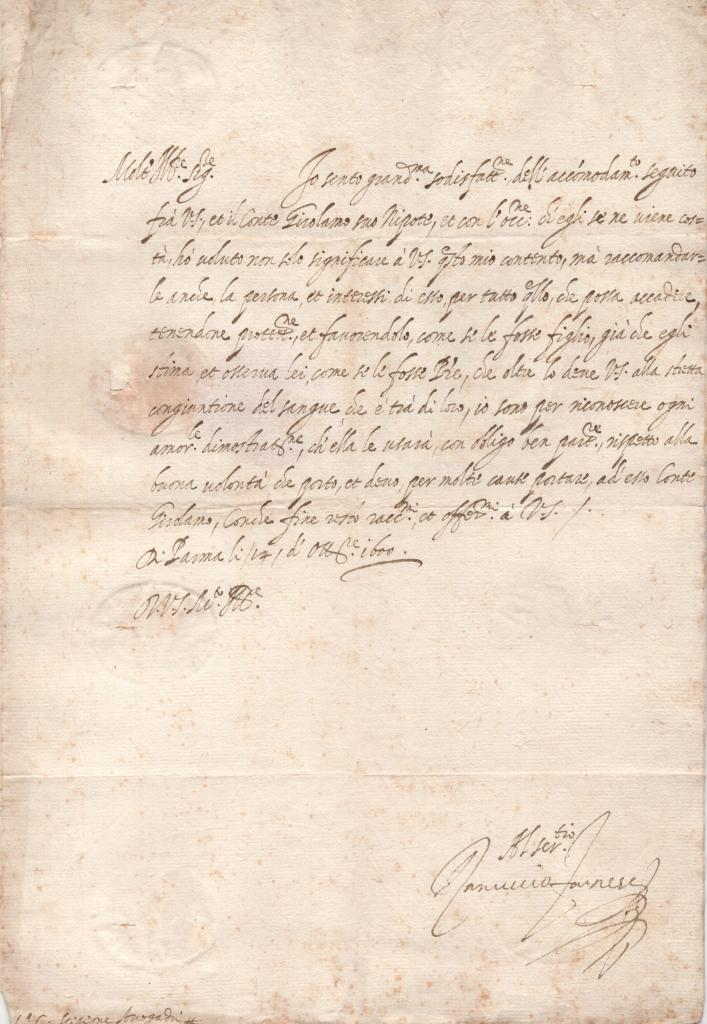 Molt' Ill.re Sig.re Io sento grand.ma sodisfatt.ne dell'accomodam.to seguito
frà V.S., et il Conte Girolamo suo Nipote, et con l'occ.ne ch'egli se ne viene cos-
tà, hò voluto non solo significare à V.S. q.sto mio contento, mà raccomandar-
le anche la persona, et interessi di esso, per tutto q.llo, che possa accadere,
tenendone protett.ne, et favorendolo, come se le fosse figlio, già che egli
stima, et osserva lei, come se le fosse P're, che oltre lo deve V.S. alla stretta
congiuntione del sangue che è trà di loro, io sono per riconoscere ogni
amor.le dimostrat.ne, ch'ella le usarà, con obligo ben par.re, rispetto alla
buona volontà, che porto, et devo, per molte cause portare, ad esso Conte
Girolamo, Conche fine resto racc.mi, et offer.mi à V.S. /.
Di Parma li 14, d'Ott.re 1600.
Di V.S. M.to Ill.re
Al ser.tio
Ranuccio Farnese
Scipione